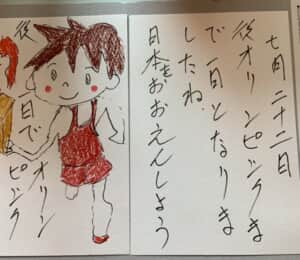 七月二十二日
後オリンピックま
で一日となりま
したね
日本をおおえんしよう
後
日で
オリン
ピック